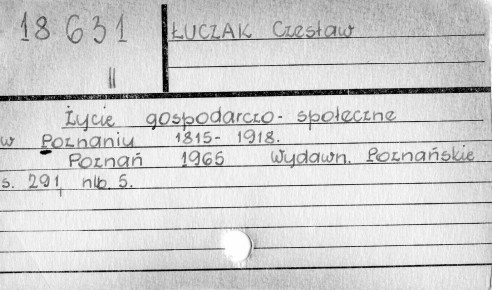 18 631
II
ŁUCZAK Czesław
Życie gospodarczo-społeczne
w Poznaniu 1815-1918.
Poznań 1965 Wydawn. Poznańskie
s. 291, nlb. 5.